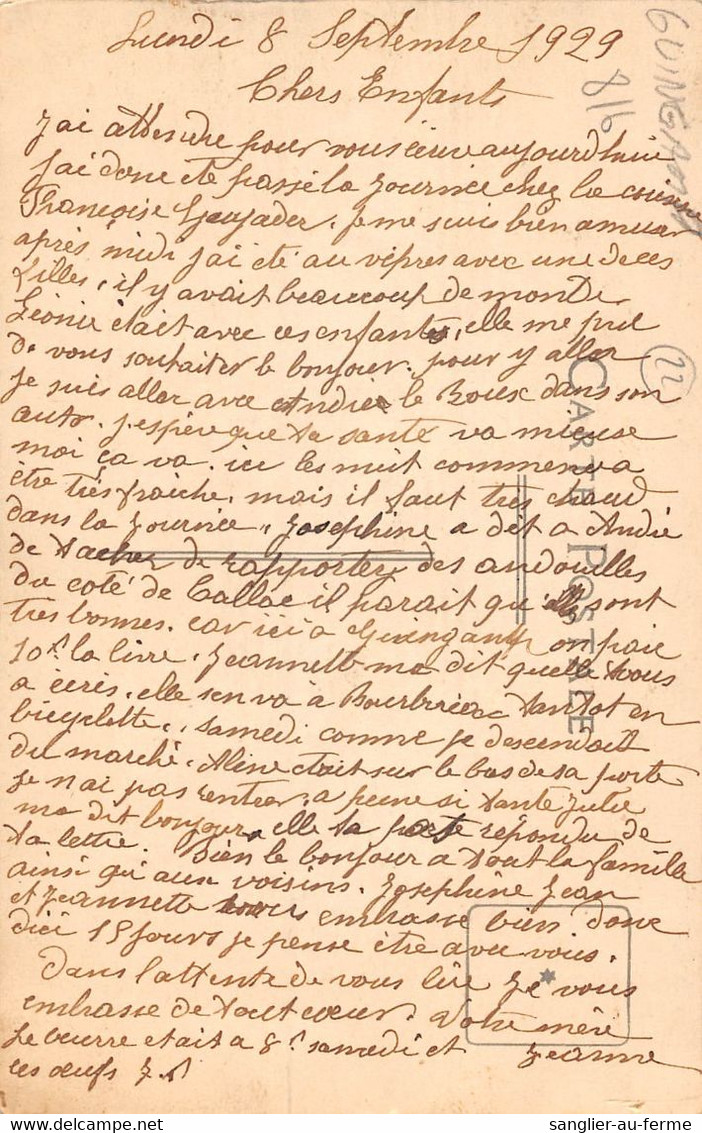 Lundi 8 Septembre 1929
Chers Enfants
J'ai attendre pour vous écrire aujourd'huie
J'ai donc été passé la Journée chez la cousine
Françoise. Je me suis bien amuser
après midi J'ai été au vépres avec une de ces
filles, il y avait beaucoup de monde
Léonie était avec ces enfants, elle me prie
de vous souhaiter le bonjour. pour y aller
Je suis aller avec Andrée le Roux dans son
auto. J'espère que ta santé va mieuse
moi ça va. ici les nuit commence a
être très fraiche. mais il faut très chaud
dans la Journée. Joséphine a dit a André
de tacher de rapporter des andouilles
du coté de Callac il parait qu'ils sont
très bonnes. car ici a Guingamp on paie
10f. la livre. Jeannette ma dit quelle vous
a écris. elle s'en va a Bourbriac tantot en
bicyclette, samedi comme je descendait
du marché. Aline était sur le bas de sa porte
Je n'ai pas rentrer. a peine si tante Julie
ma dit bonjour. elle ta répondu de
ta lettre. Bien le bonjour a tout la famille
ainsi qu'aux voisins. Joséphine Jean
et Jeannette vous embrasse bien. donc
dici 15 Jours je pense être avec vous.
Dans l'attente de vous lire Je vous
embrasse de tout cœur. Votre mère
Jeanne
Le beurre etait a 8f. samedi et
les œufs 7f
GUINGAMP
816
22
CARTE POSTALE
sanglier-au-ferme - delcampe.net